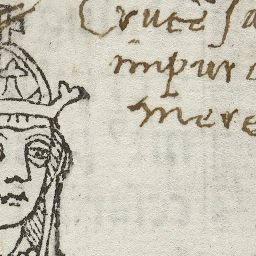 Crucē sa
impur
mere